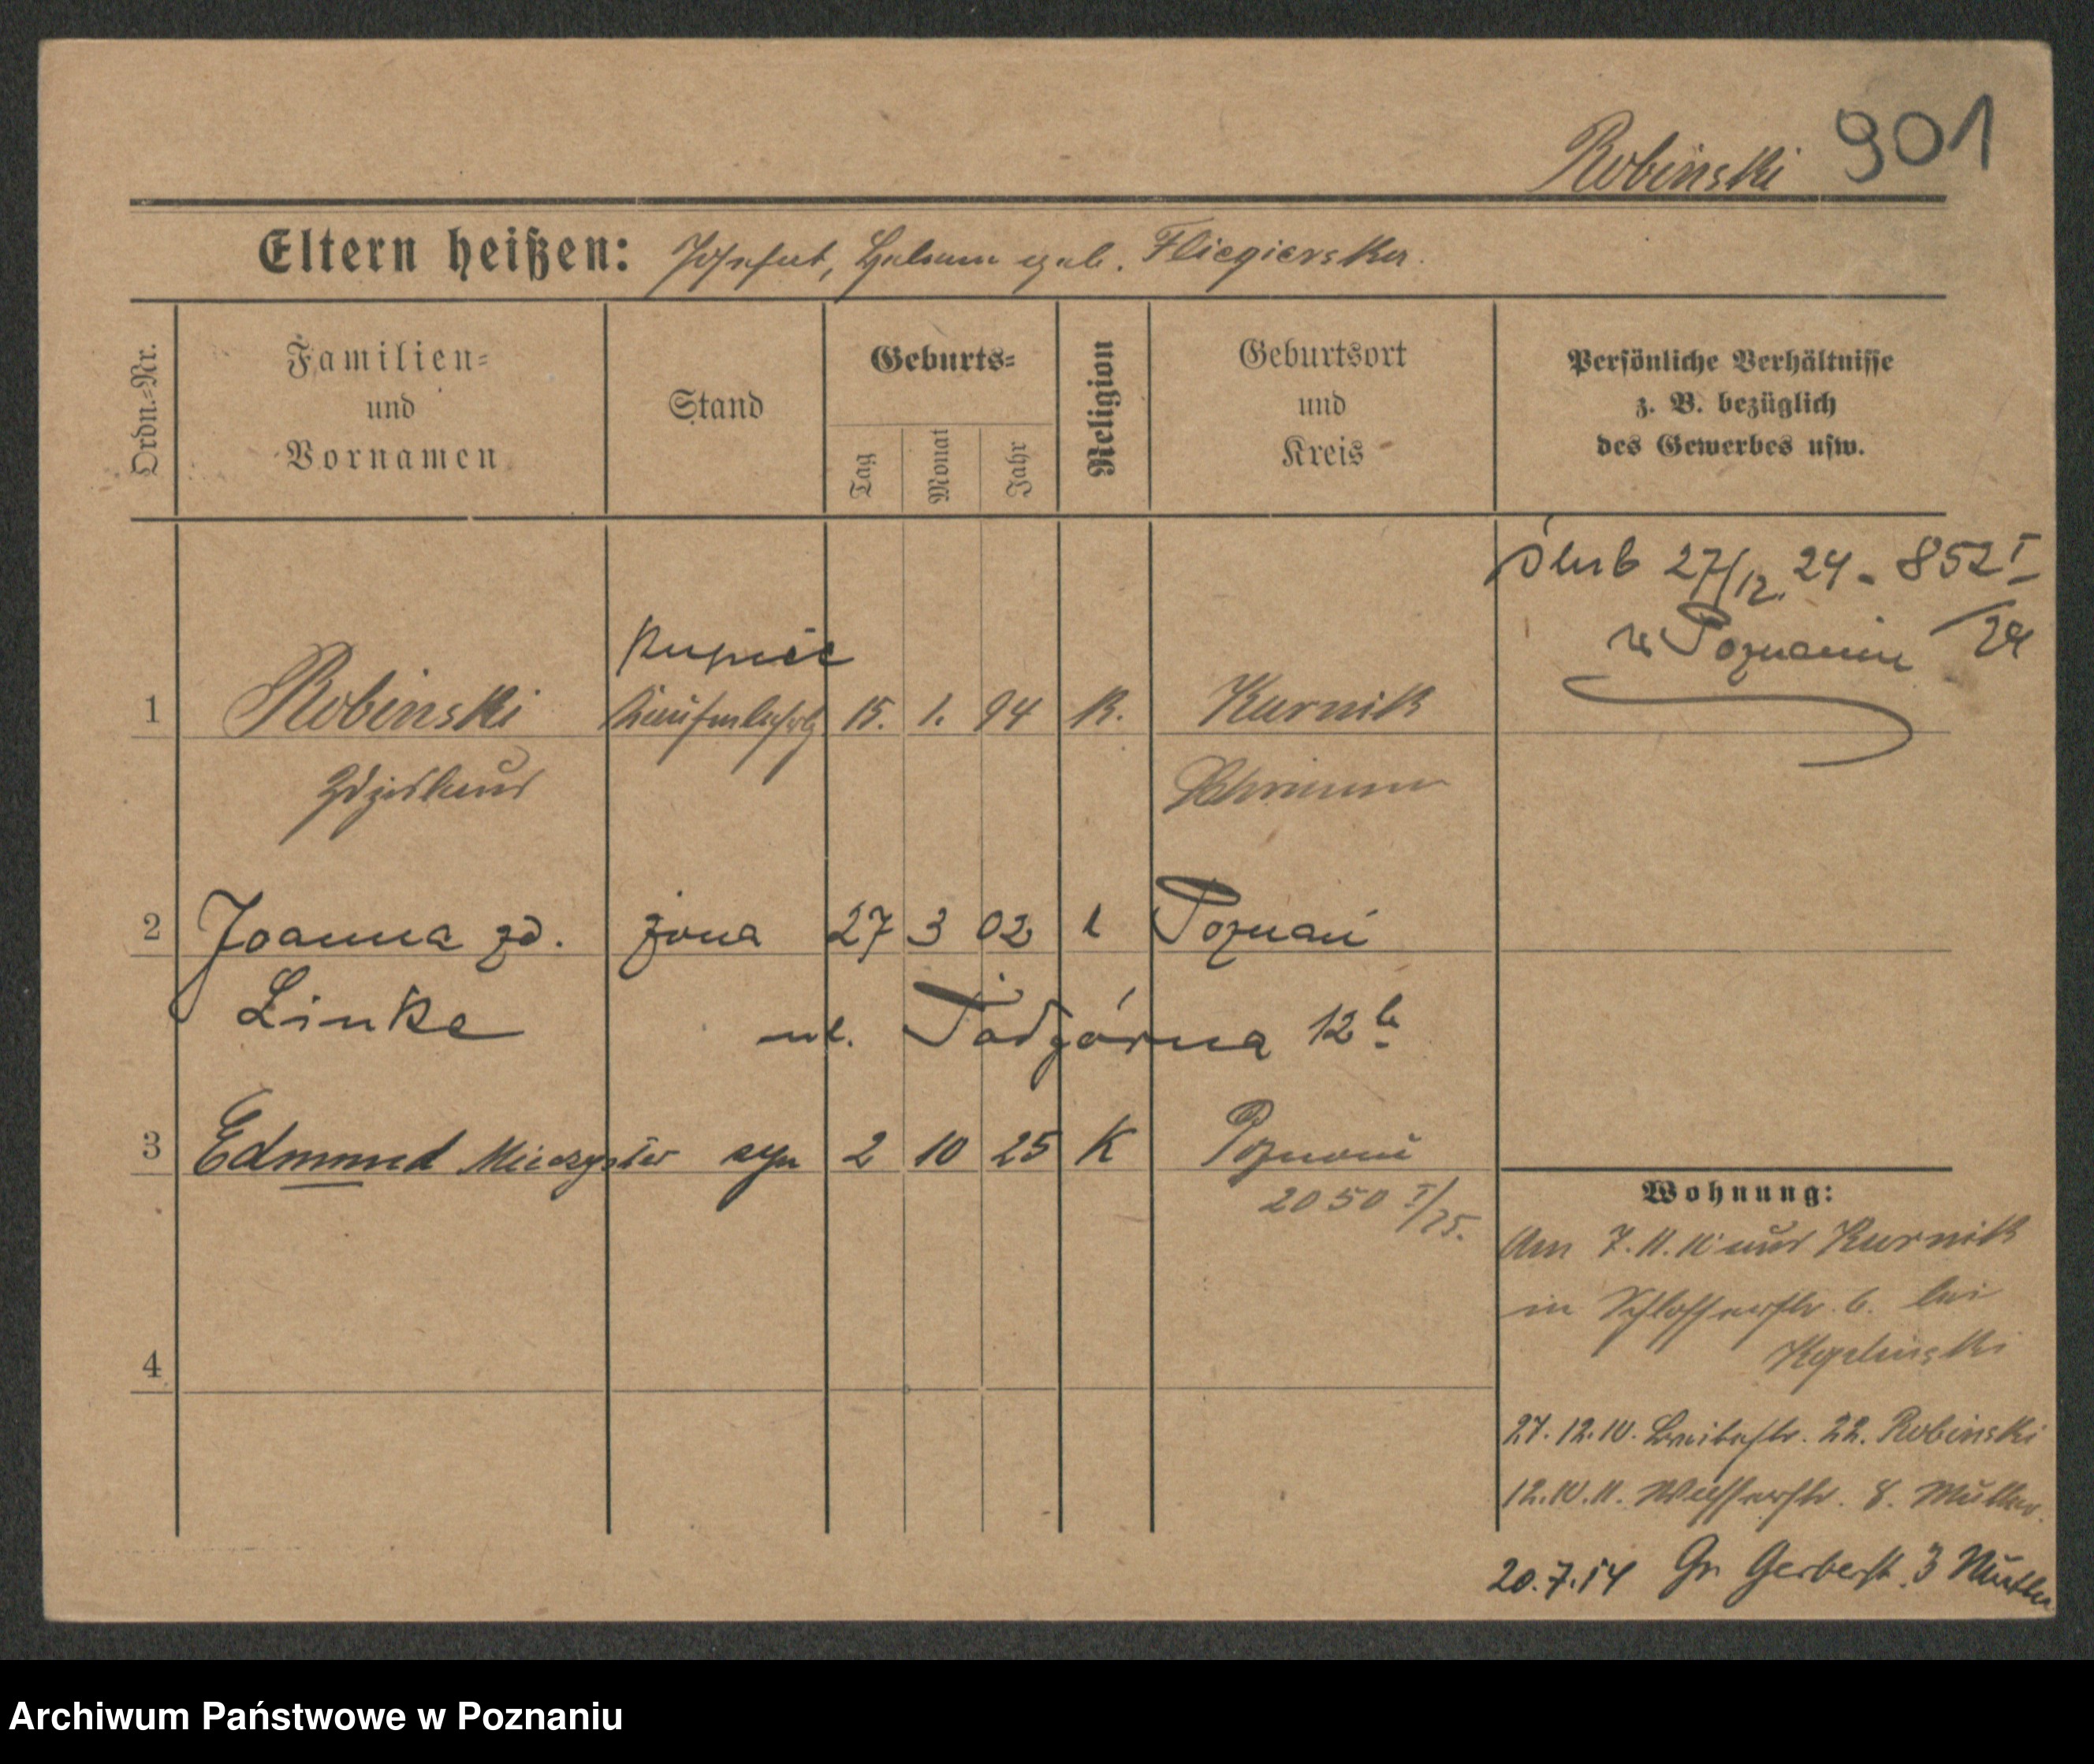 901
Robinski
Eltern heißen: Josefat, Helena geb. Fliegierska.
Ordn.-Nr.
Familien-
und
Vornamen
Stand
Geburts-
Tag
Monat
Jahr
Religion
Geburtsort
und
Kreis
Persönliche Verhältnisse
z. B. bezüglich
des Gewerbes usw.
ślub 27/12. 24 - 852 I
w Poznaniu /24
kupiec
1 Robinski 15. 1. 94 K. Kurnik
Schrimm
2 Joanna zd. żona 27 3 02 k Poznań
Linke ul. Podgórna 12 b
3 Edmund Mieczysław syn 2 10 25 K Poznań
2050 I/25.
4
Wohnung:
Am 7.11.10 aus Kurnik
in Schlosserstr. 6. bei
27.12.10. Breitestr. 22. Robinski
12.10.11. Wasserstr. 8. Mutter
20.7.14 Gr Gerberst. 3 Mutter
Archiwum Państwowe w Poznaniu